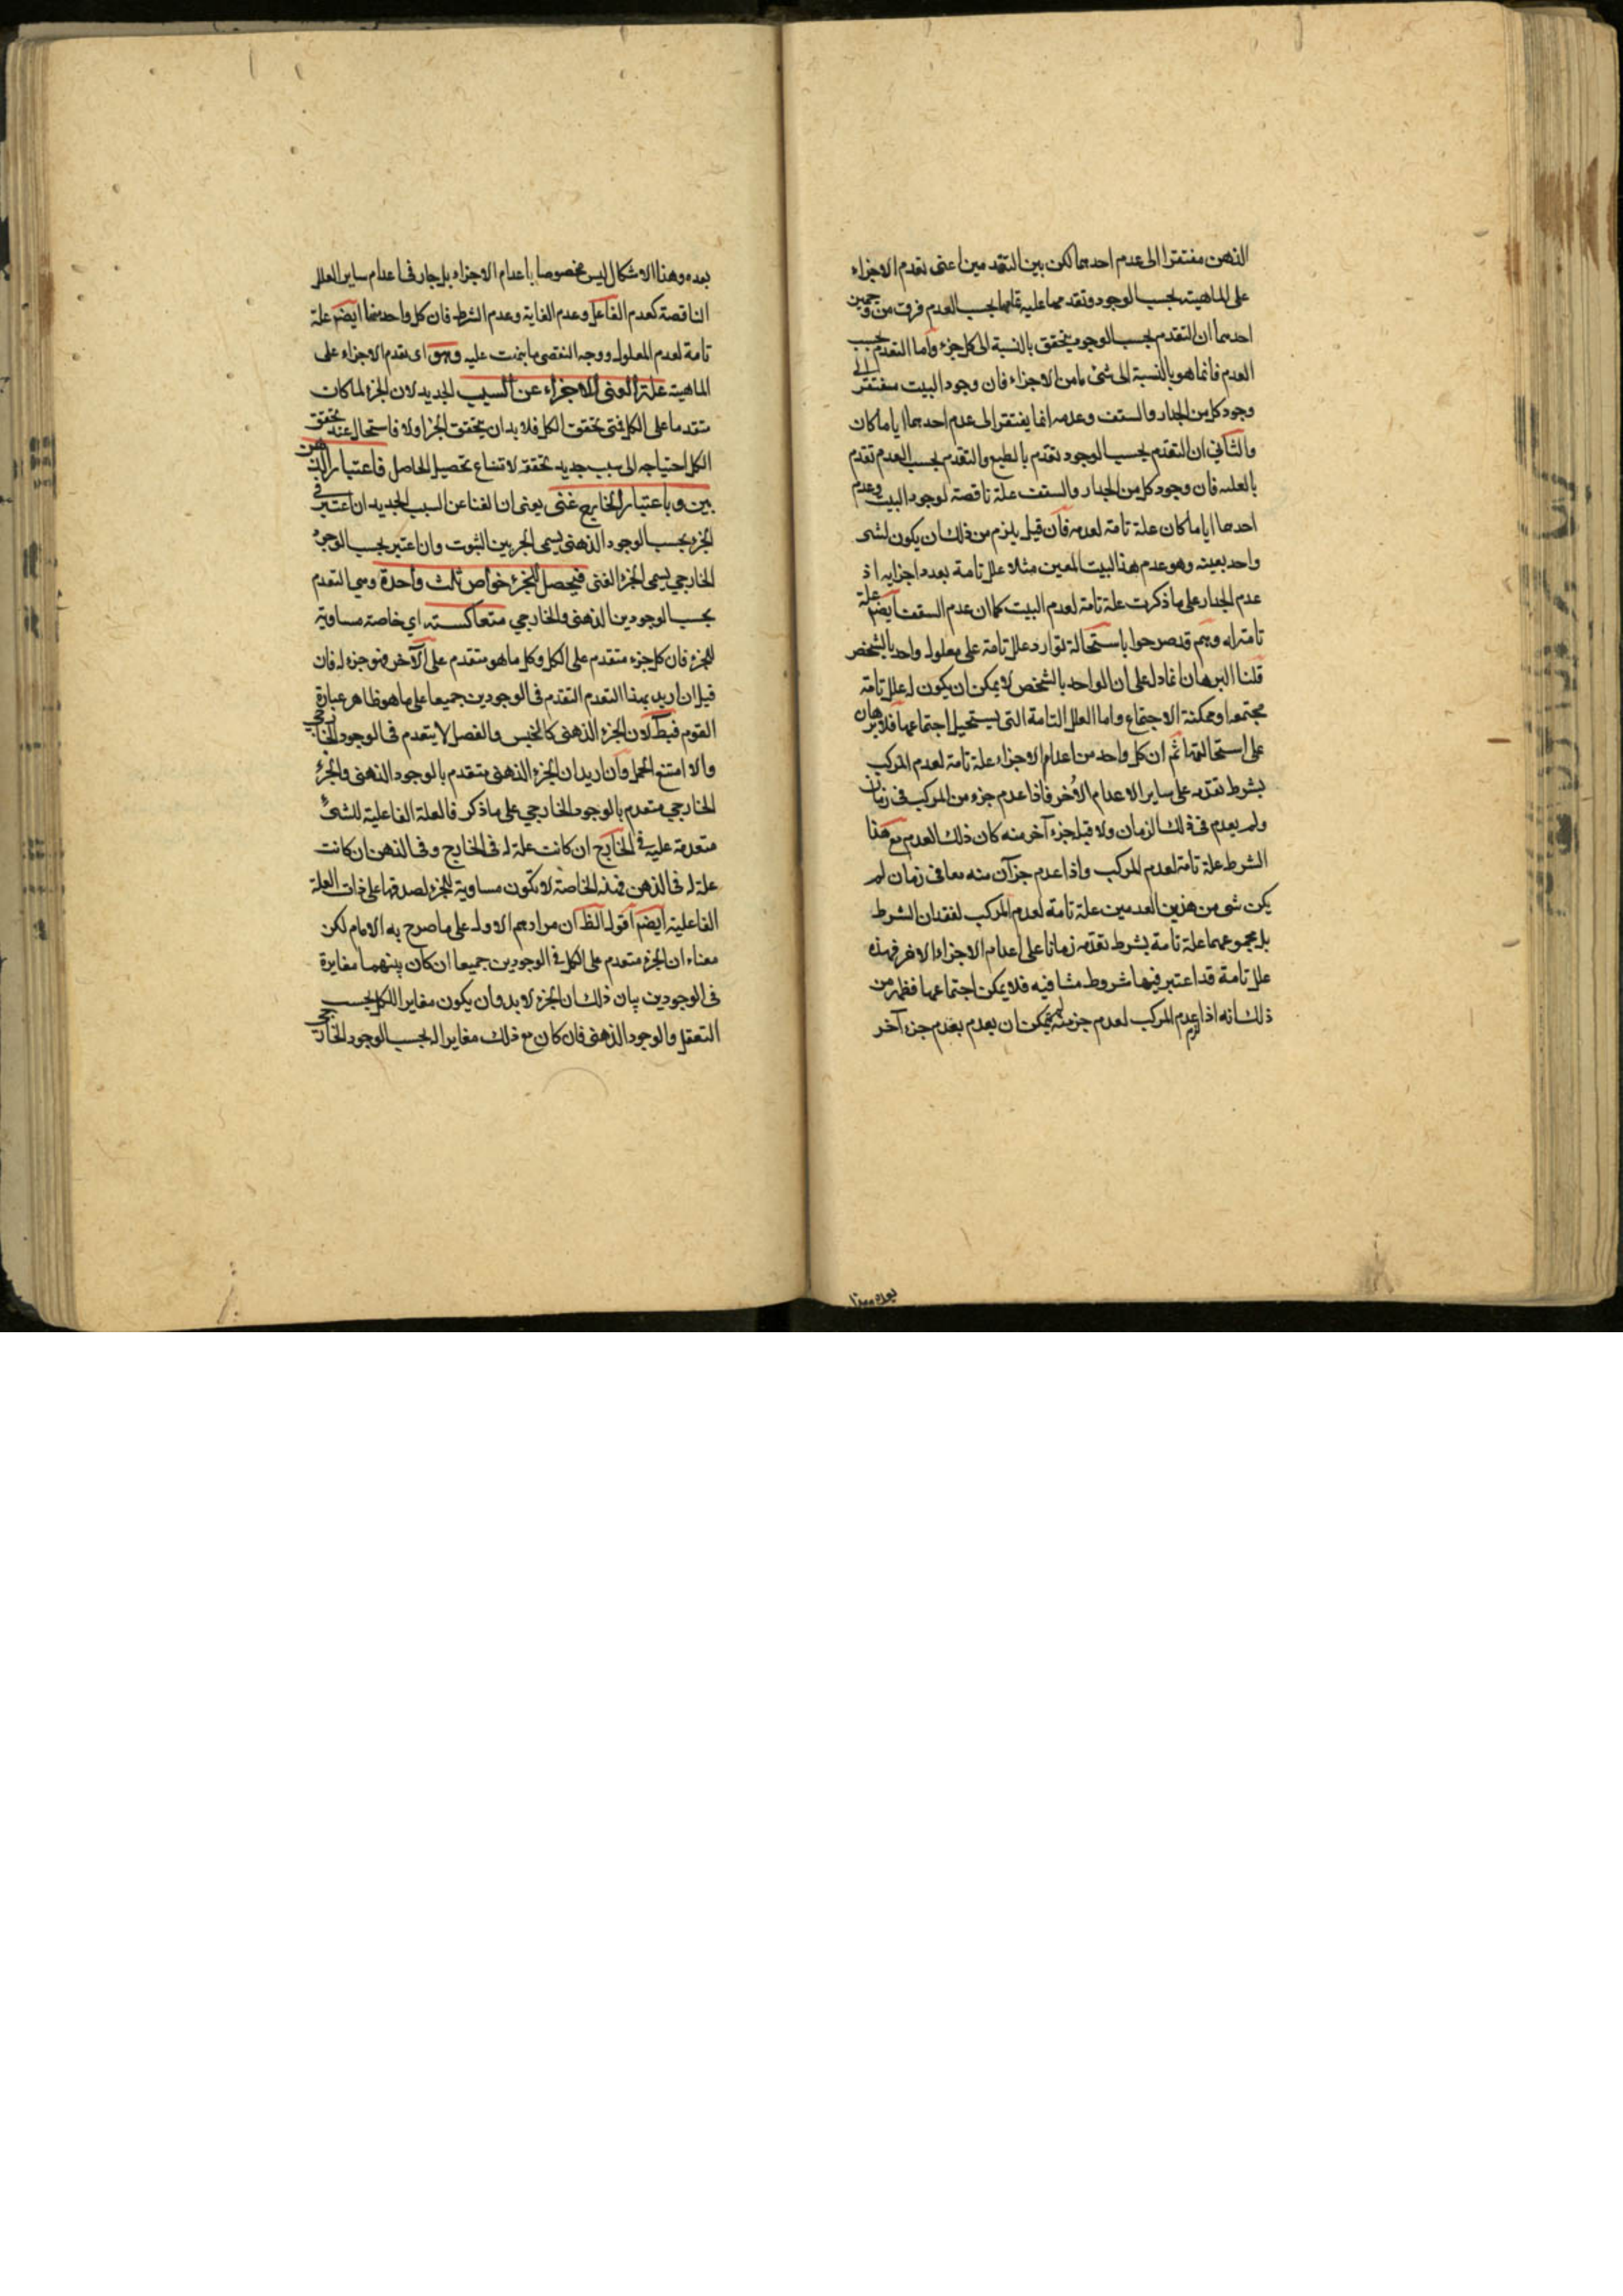 الذهن مفتقرا الى عدم احدهما لكن بين التقدمين اعنى تقدم الاجزاء
على الماهية بحسب الوجود وتقدمها عليه تقدمها بحسب العدم فرق من وجهين
احدهما ان التقدم بحسب الوجود يتحقق بالنسبة الى كل جزء واما التقدم بحسب
العدم فانما هو بالنسبة الى شئ ما من الاجزاء فان وجود البيت مفتقر الى
وجود كل من الجدار والسقف وعدمه انما يفتقر الى عدم احدهما ايا ما كان
والثانى ان التقدم بحسب الوجود تقدم بالطبع والتقدم بحسب العدم تقدم
بالعلية فان وجود كل من الجدار والسقف علة ناقصة لوجود البيت وعدم
احدهما ايا ما كان علة تامة لعدمه فان قيل يلزم من ذلك ان يكون لشئ
واحد بعينه وهو عدم هذا البيت المعين مثلا علل تامة بعدد اجزايه اذ
عدم الجدار على ما ذكرت علة تامة لعدم البيت كما ان عدم السقف ايضم علة
تامة له وهم قد صرحوا باستحالة توارد علل تامة على معلول واحد بالشخص
قلنا البرهان انما دل على ان الواحد بالشخص لا يمكن ان يكون له علل تامة
مجتمعة او ممكنة الاجتماع واما العلل التامة التى يستحيل اجتماعها فلا برهان
على استحالتها ثم ان كل واحد من اعدام الاجزاء علة تامة لعدم المركب
بشرط تقدمه على ساير الاعدام الأخر فاذا عدم جزء من المركب فى زمان
ولم يعدم فى ذلك الزمان ولا قبله جزء آخر منه كان ذلك العدم مع هذا
الشرط علة تامة لعدم المركب واذا عدم جزآن منه معا فى زمان لم
يكن شئ من هذين العدمين علة تامة لعدم المركب لفقدان الشرط
بل مجموعهما علة تامة بشرط تقدمه زمانا على اعدام الاجزاء الاخر فهذه
علل تامة قد اعتبر فيها شروط متنافية فلا يمكن اجتماعها فظهر من
ذلك انه اذا عدم المركب لعدم جزء منه لم يمكن ان يعدم بعدم جزء آخر
بعده وهذا
بعده وهذا الاشكال ليس مخصوصا باعدام الاجزاء بل جار فى اعدام ساير العلل
الناقصة كعدم الفاعل وعدم الغاية وعدم الشرط فان كل واحد منها ايضم علة
تامة لعدم المعلول ووجه التفصى ما نبهت عليه وهو اى تقدم الاجزاء على
الماهية علة الغنى للاجزاء عن السبب الجديد لان الجزء لما كان
متقدما على الكل فمتى تحقق الكل فلا بد ان يتحقق الجزء اولا فاستحال عند تحقق
الكل احتياجه الى سبب جديد تحققه لامتناع تحصيل الحاصل فاعتبار الذهن
بين وباعتبار الخارج غنى يعنى ان الغنا عن السبب الجديد ان اعتبر فى
الجزء بحسب الوجود الذهنى يسمى الجزء بين الثبوت وان اعتبر بحسب الوجود
الخارجى يسمى الجزء الغنى فيحصل للجزء خواص ثلث واحدة وهى التقدم
بحسب الوجودين الذهنى والخارجى متعاكسته اى خاصة مساوية
للجزء فان كل جزء متقدم على الكل وكل ما هو متقدم على الآخر فهو جزء له فان
قيل ان اريد بهذا التقدم التقدم فى الوجودين جميعا على ما هو ظاهر عبارة
القوم فبط لان الجزء الذهنى كالجنس والفصل لا يتقدم فى الوجود الخارجى
والا امتنع الحمل وان اريد ان الجزء الذهنى متقدم بالوجود الذهنى والجزء
الخارجى متقدم بالوجود الخارجى على ما ذكر فالعلة الفاعلية للشئ
متقدمة عليه فى الخارج ان كانت علة له فى الخارج وفى الذهن ان كانت
علة له فى الذهن فهذه الخاصة لا تكون مساوية للجزء لصدقها على ذات العلة
الفاعلية ايضم اقول الظ ان مرادهم الاول على ما صرح به الامام لكن
معناه ان الجزء متقدم على الكل فى الوجودين جميعا ان كان بينهما مغايرة
فى الوجودين بيان ذلك ان الجزء لا بد وان يكون مغايرا للكل بحسب
التعقل والوجود الذهنى فان كان مع ذلك مغايرا له بحسب الوجود الخارجى